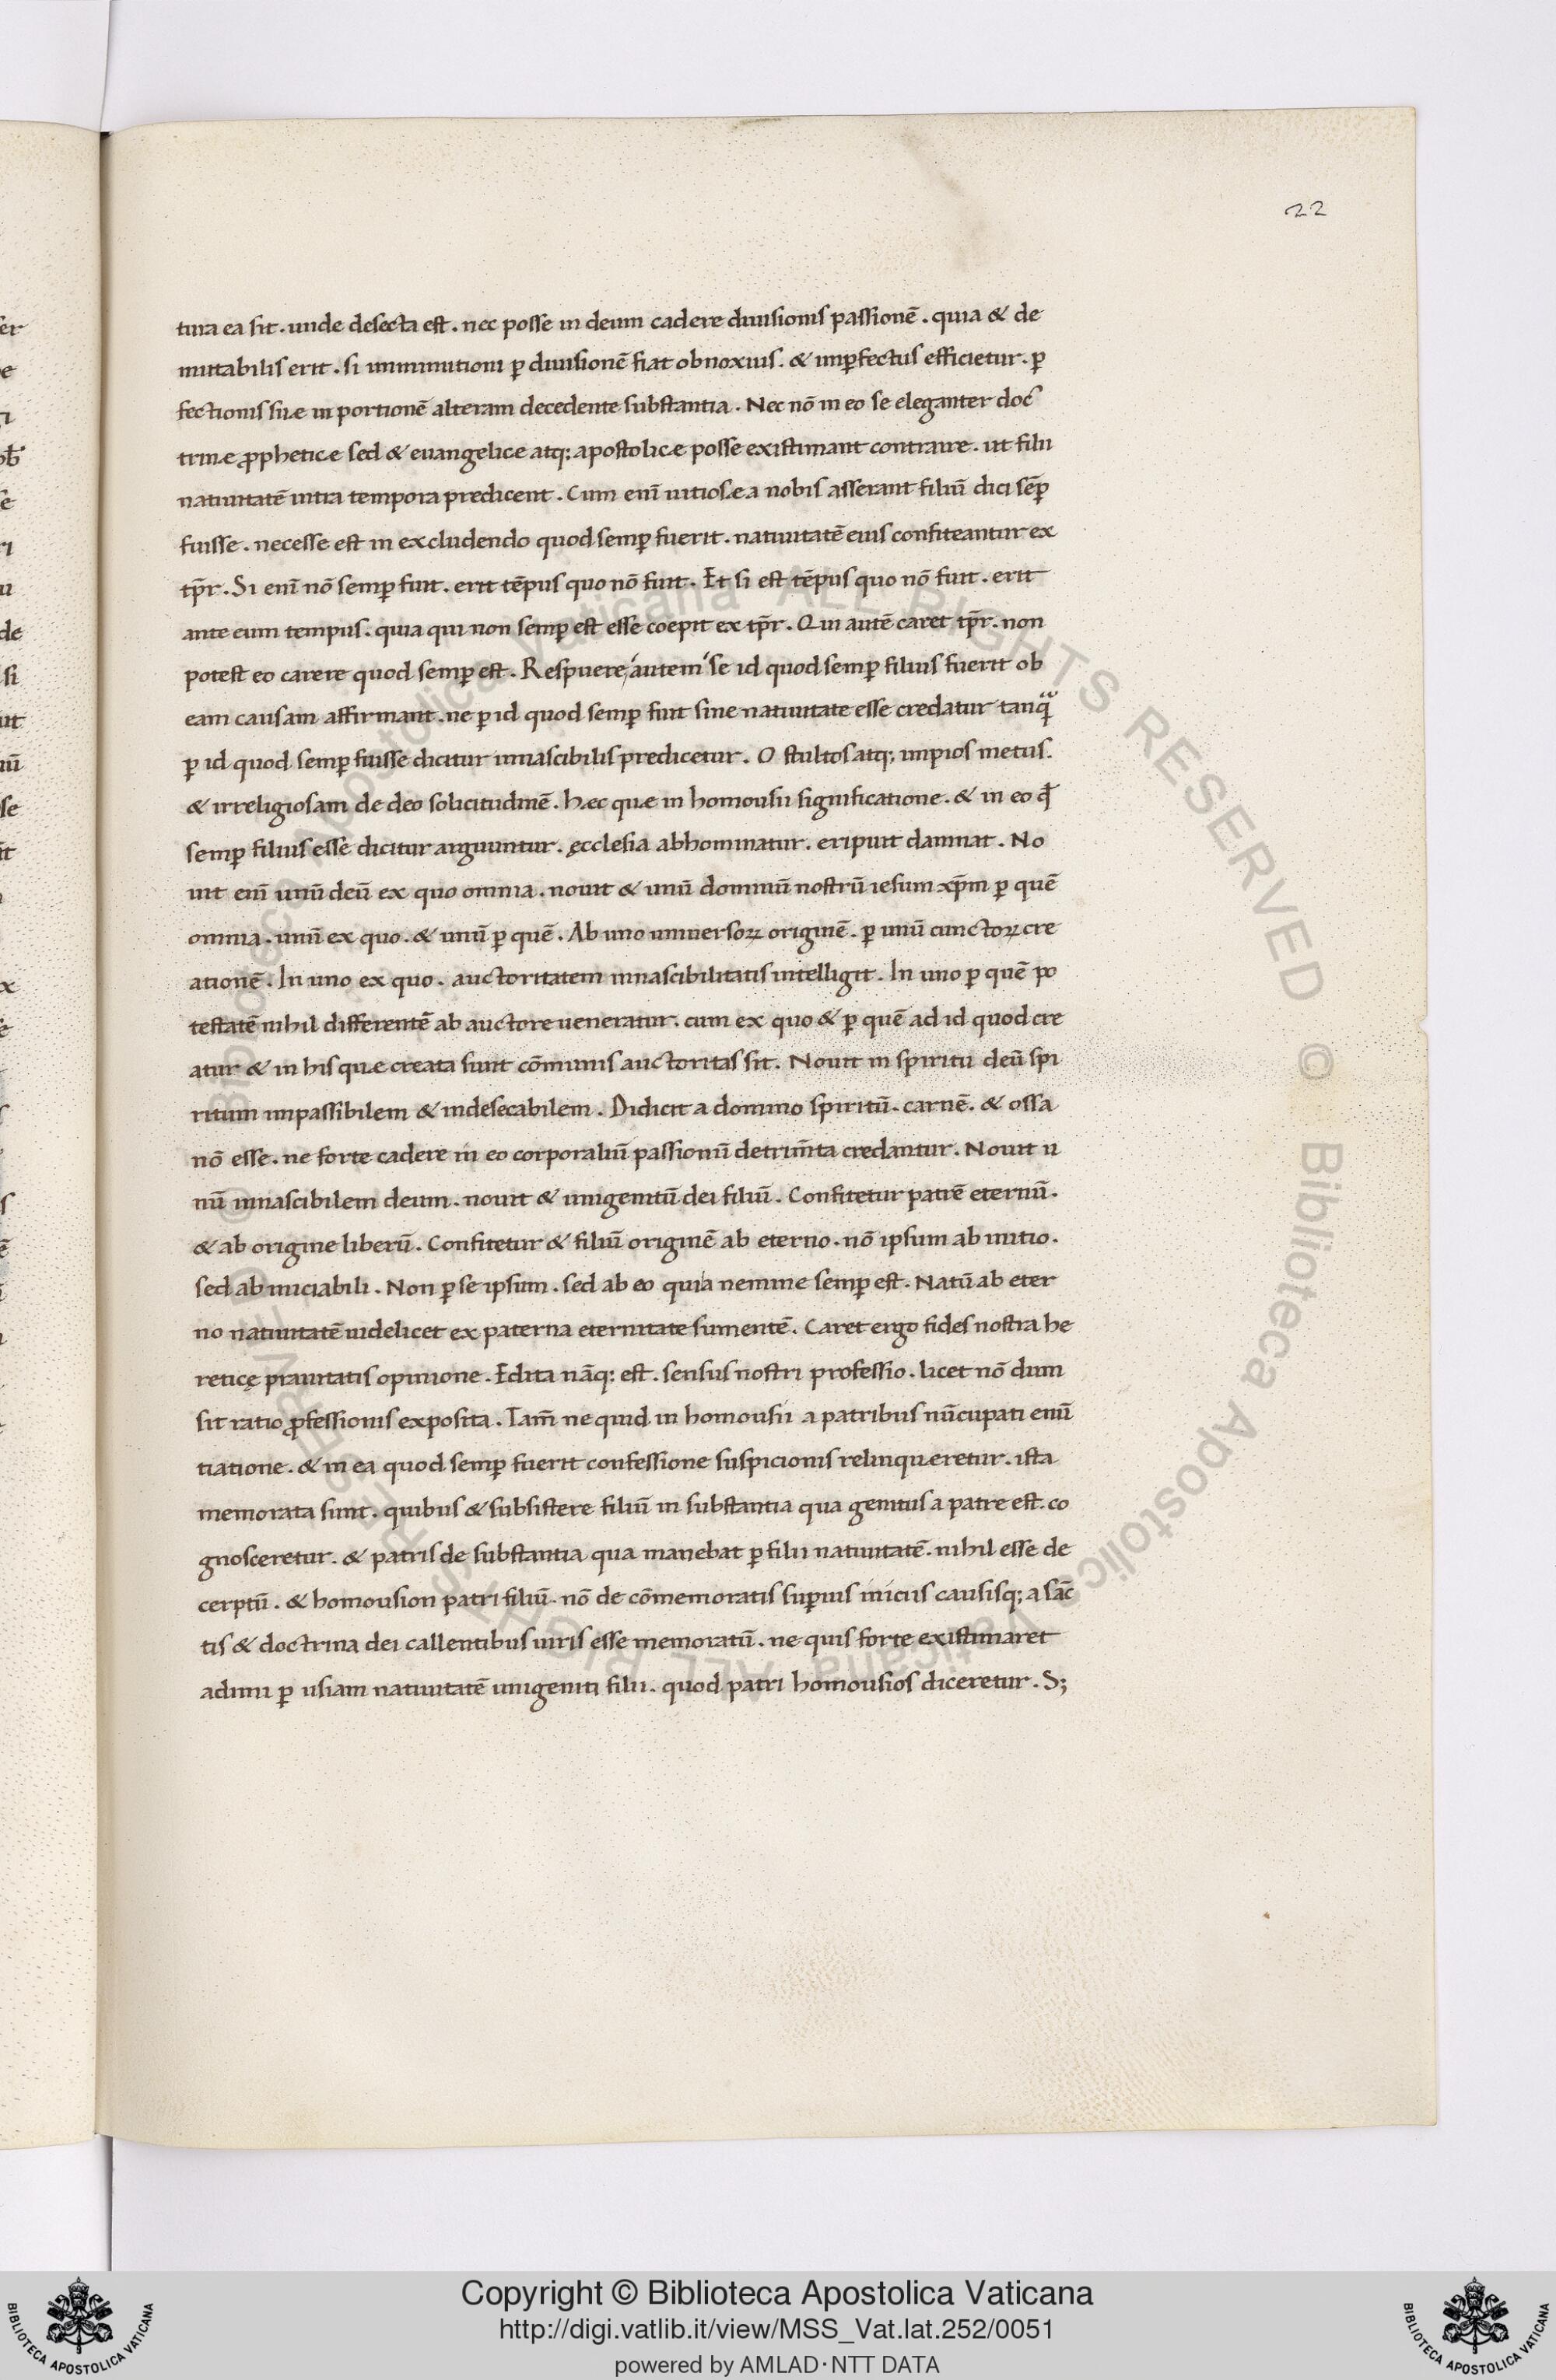 22
tura ea sit. unde desecta est. nec posse in deum cadere diuisionis passionē. quia & de
mutabilis erit. si imminutioni ꝑ diuisionē fiat obnoxius. & imꝑfectus efficietur. ꝑ
fectionis suæ in portionē alteram decedente substantia. Nec nō in eo se eleganter doc
trinæ ꝓpheticæ sed & euangelicæ atq; apostolicæ posse existimant contraire. ut filii
natiuitatē intra tempora predicent. Cum enī uitiosæ a nobis asserant filiū dici semꝑ
fuisse. necesse est in excludendo quod semꝑ fuerit. natiuitatē eius confiteantur ex
tp̄r. Si enī nō semꝑ fuit. erit tēpus quo nō fuit. Et si est tēpus quo nō fuit. erit
ante eum tempus. quia qui non semꝑ est esse coepit ex tp̄r. Qui autē caret tp̄r. non
potest eo carere quod semꝑ est. Respuere autem se id quod semꝑ filius fuerit ob
eam causam affirmant. ne ꝑ id quod semꝑ fuit sine natiuitate esse credatur tanq̃
ꝑ id quod semꝑ fuisse dicitur innascibilis predicetur. O stultos atq; impios metus.
& irreligiosam de deo solicitudinē. hæc quæ in homousii significatione. & in eo qđ
semꝑ filius esse dicitur arguuntur. ęcclesia abhominatur. eripuit damnat. No
uit enī unū deū ex quo omnia. nouit & unū dominū nostrū iesum xp̄m ꝑ quē
omnia. unū ex quo. & unū ꝑ quē. Ab uno uniuersoꝝ originē. ꝑ unū cunctoꝝ cre
ationē. In uno ex quo. auctoritatem innascibilitatis intelligit. In uno ꝑ quē po
testatē nihil differentē ab auctore ueneratur. cum ex quo & ꝑ quē ad id quod cre
atur & in his quæ creata sunt cōmunis auctoritas sit. Nouit in spiritu deū spi
ritum impassibilem & indesecabilem. Didicit a domino spiritū. carnē. & ossa
nō esse. ne forte cadere in eo corporaliū passionū detrim̄ta credantur. Nouit u
nū innascibilem deum. nouit & unigenitū dei filiū. Confitetur patrē eternū.
& ab origine liberū. Confitetur & filiū originē ab eterno. nō ipsum ab initio.
sed ab iniciabili. Non ꝑ se ipsum. sed ab eo quia nemine semꝑ est. Natū ab eter
no natiuitatē uidelicet ex paterna eternitate sumentē. Caret ergo fides nostra he
reticę prauitatis opinione. Edita nāq; est. sensus nostri professio. licet nō dum
sit ratio ꝓfessionis exposita. Iam̄ ne quid in homousii a patribus nūcupati enū
tiatione. & in ea quod semꝑ fuerit confessione suspicionis relinqueretur. ista
memorata sunt. quibus & subsistere filiū in substantia qua genitus a patre est. co
gnosceretur. & patris de substantia qua manebat ꝑ filii natiuitatē. nihil esse de
cerptū. & homousion patri filiū. nō de cōmemoratis suꝑius iniciis causisq; a sāc
tis & doctrina dei callentibus uiris esse memoratū. ne quis forte existimaret
adimi ꝑ usiam natiuitatē unigeniti filii. quod patri homousios diceretur. S;
Copyright © Biblioteca Apostolica Vaticana
http://digi.vatlib.it/view/MSS_Vat.lat.252/0051
powered by AMLAD·NTT DATA
BIBLIOTECA APOSTOLICA VATICANA
BIBLIOTECA APOSTOLICA VATICANA